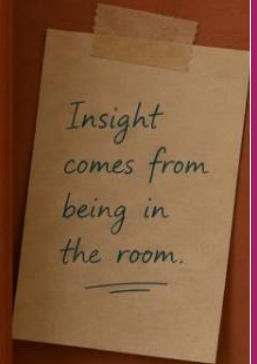 Insight
comes from
being in
the room.